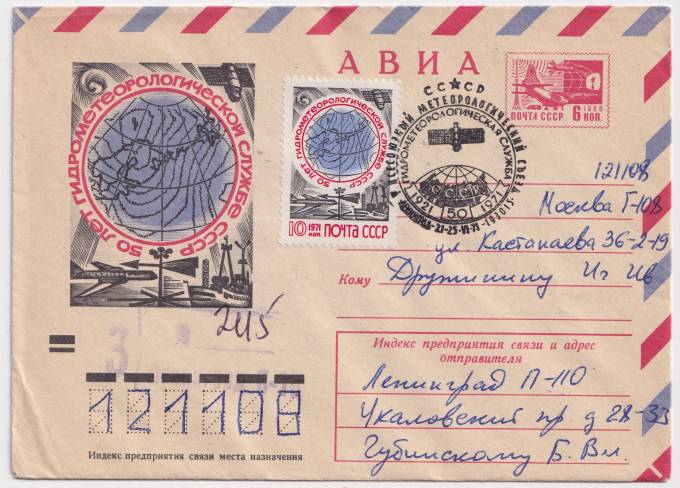 АВИА
50 ЛЕТ ГИДРОМЕТЕОРОЛОГИЧЕСКОЙ СЛУЖБЕ СССР
50 ЛЕТ ГИДРОМЕТЕОРОЛОГИЧЕСКОЙ СЛУЖБЕ СССР
10 КОП. 1971 ПОЧТА СССР
СССР
ВСЕСОЮЗНЫЙ МЕТЕОРОЛОГИЧЕСКИЙ СЪЕЗД
ГИДРОМЕТЕОРОЛОГИЧЕСКАЯ СЛУЖБА
СССР
1921 50 1971
ЛЕНИНГРАД-21-25-VI-71
1966
ПОЧТА СССР 6 КОП.
121108
Москва Г-108
ул Кастанаева 36-2-19
Кому Дружинину Иг Ив
2115
Индекс предприятия связи и адрес
отправителя
Ленинград П-110
Чкаловский пр д 28-33
Губинскому Б. Вл.
121108
Индекс предприятия связи места назначения